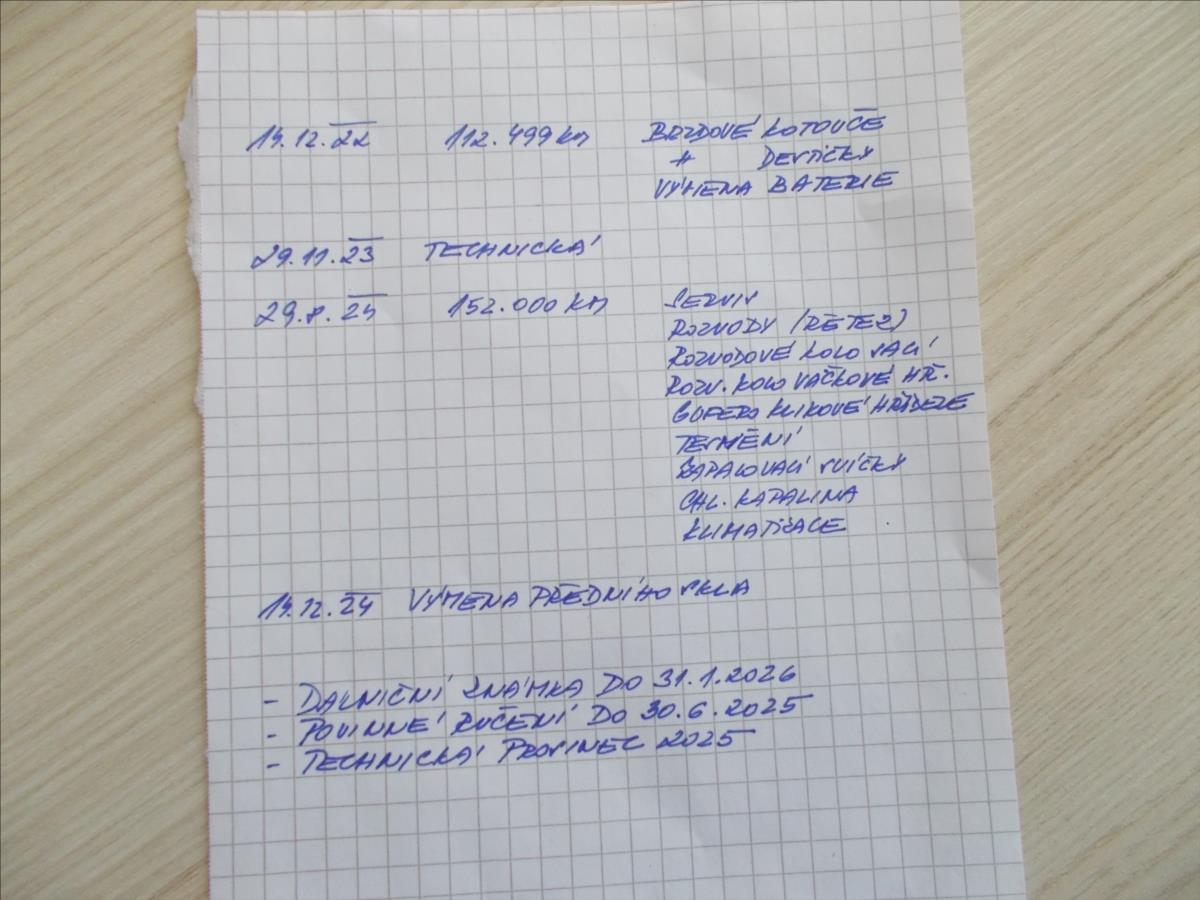 14.12.22 112.499 KM BRZDOVÉ KOTOUČE
+ DESTIČKY
VÝMĚNA BATERIE
29.11.23 TECHNICKÁ
29.8.24 152.000 KM SERVIS
ROZVODY (ŘETĚZ)
ROZVODOVÉ KOLO SACÍ
ROZV. KOLO VAČKOVÉ HŘ.
GUFERO KLIKOVÉ HŘÍDELE
TĚSNĚNÍ
ZAPALOVACÍ SVÍČKY
CHL. KAPALINA
KLIMATIZACE
14.12.24 VÝMĚNA PŘEDNÍHO SKLA
- DALNIČNÍ ZNÁMKA DO 31.1.2026
- POVINNÉ RUČENÍ DO 30.6.2025
- TECHNICKÁ PROSINEC 2025